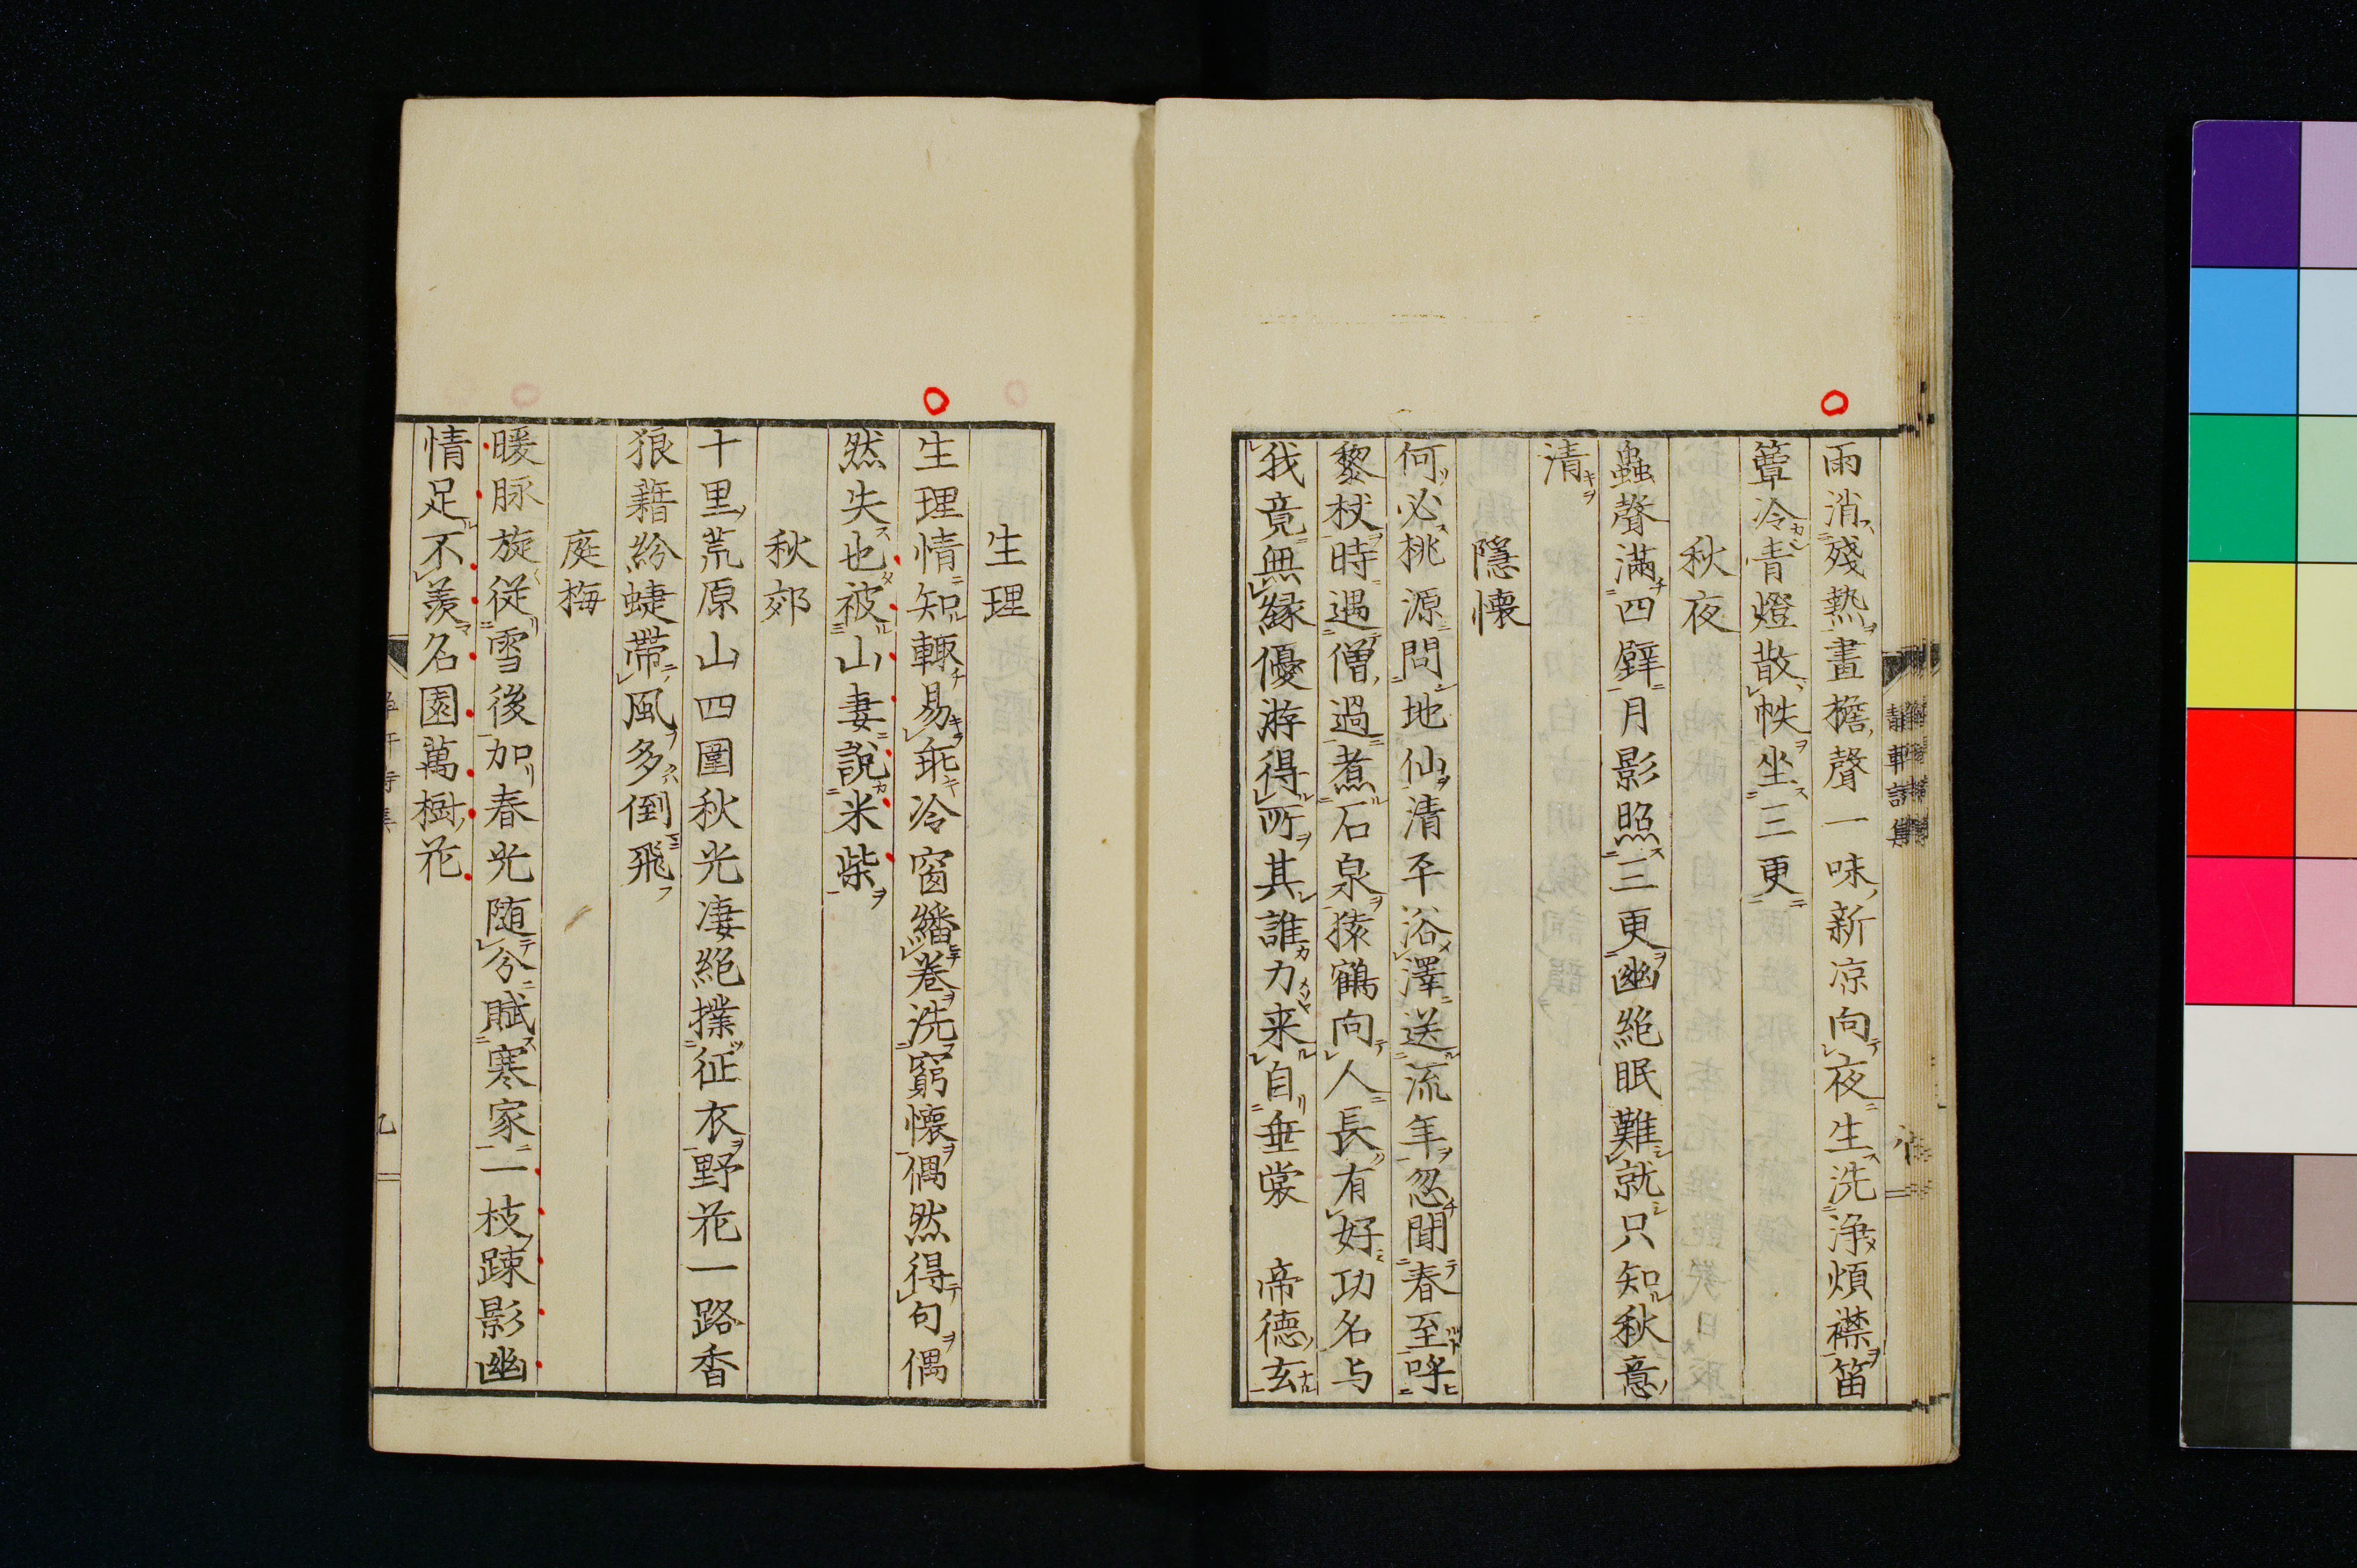 雨消殘熱畫檐聲一味新凉向夜生洗淨煩襟笛
簟冷青燈散帙坐三更
秋夜
蟲聲滿四壁月影照三更幽絶眠難就只知秋意
清
隱懷
何必桃源問地仙清平浴澤送流年忽聞春至呼
藜杖時遇僧過煮石泉猿鶴向人長有好功名与
我竟無縁優游得所其誰力来自垂裳 帝德玄
生理
生理情知輙易乖冷窗繙卷洗窮懷偶然得句偶
然失也被山妻說米柴
秋郊
十里荒原山四圍秋光凄絶撲征衣野花一路香
狼藉紛蜨帶風多倒飛
庭梅
暖脉旋従雪後加春光随分賦寒家一枝踈影幽
情足不羨名園萬樹花